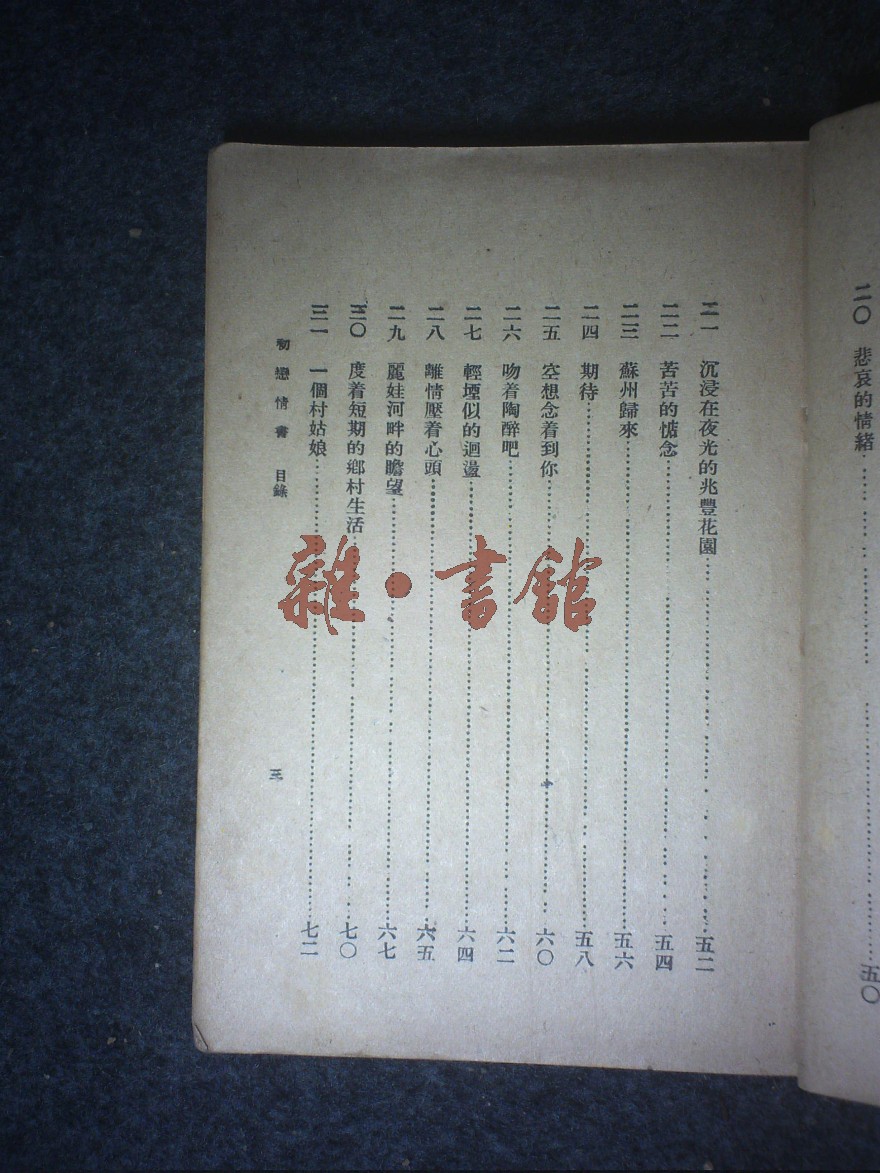 二〇 悲哀的情緒 五〇
二一 沉浸在夜光的兆豐花園 五二
二二 苦苦的惦念 五四
二三 蘇州歸來 五六
二四 期待 五八
二五 空想念着到你 六〇
二六 吻着陶醉吧 六二
二七 輕堙似的迴盪 六四
二八 離情壓着心頭 六五
二九 麗娃河畔的瞻望 六七
三〇 度着短期的鄉村生活 七〇
三一 一個村姑娘 七二
初戀情書 目錄 三
雜·書館